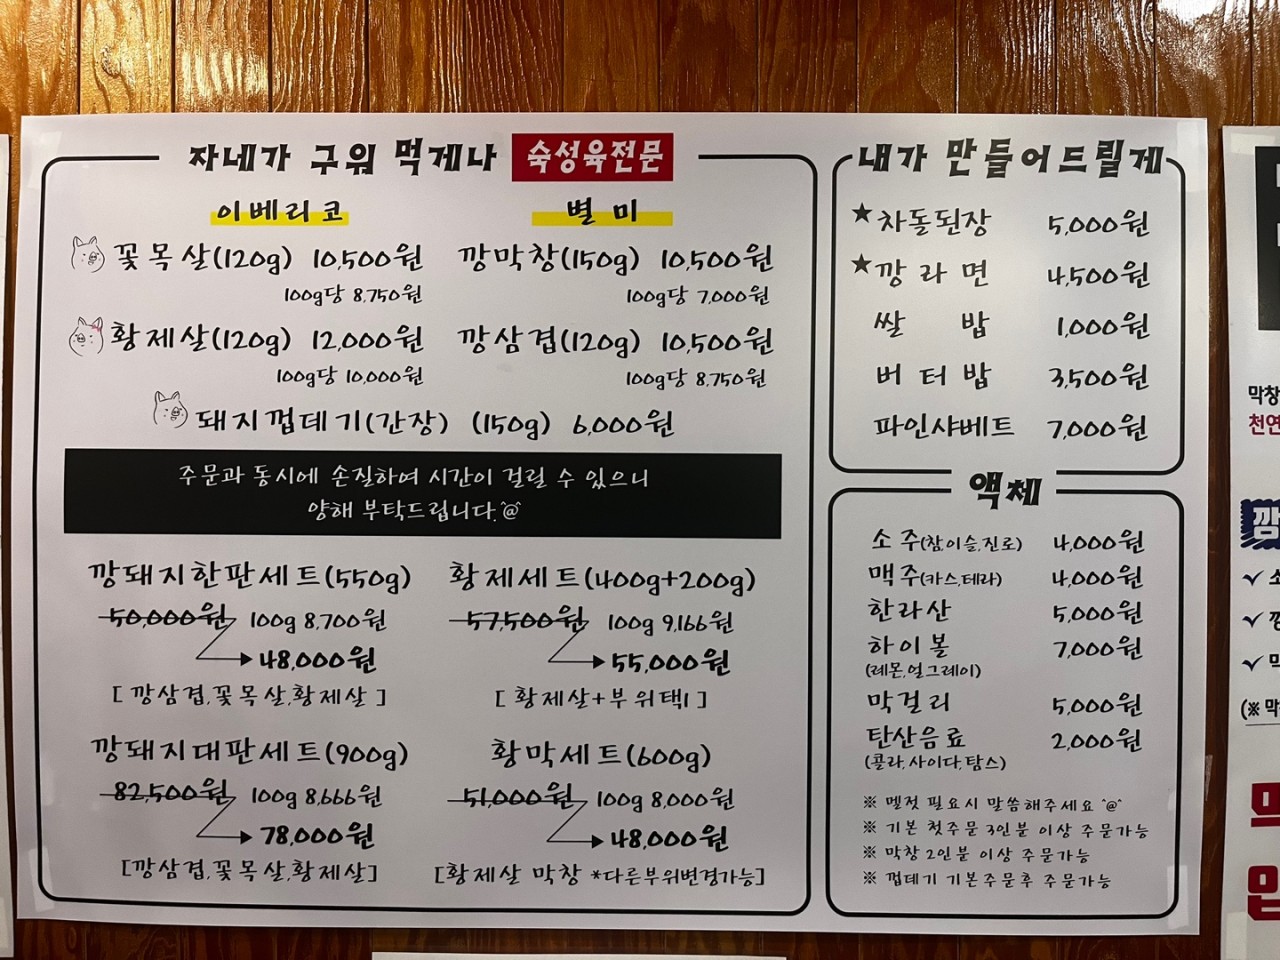 자네가 구워 먹게나 숙성육전문
이베리코
꽃목살(120g) 10,500원
100g당 8,750원
황제살(120g) 12,000원
100g당 10,000원
별미
깡막창(150g) 10,500원
100g당 7,000원
깡삼겹(120g) 10,500원
100g당 8,750원
돼지껍데기(간장) (150g) 6,000원
주문과 동시에 손질하여 시간이 걸릴 수 있으니
양해 부탁드립니다.^@^
깡돼지한판세트(550g)
50,000원 100g 8,700원
48,000원
[ 깡삼겹,꽃목살,황제살 ]
황제세트(400g+200g)
57,500원 100g 9,166원
55,000원
[ 황제살+부위택1 ]
깡돼지대판세트(900g)
82,500원 100g 8,666원
78,000원
[깡삼겹,꽃목살,황제살]
황막세트(600g)
51,000원 100g 8,000원
48,000원
[황제살 막창 *다른부위변경가능]
내가 만들어드릴게
★차돌된장 5,000원
★깡라면 4,500원
쌀밥 1,000원
버터밥 3,500원
파인샤베트 7,000원
액체
소주(참이슬,진로) 4,000원
맥주(카스,테라) 4,000원
한라산 5,000원
하이볼 7,000원
(레몬,얼그레이)
막걸리 5,000원
탄산음료 2,000원
(콜라,사이다,탐스)
※ 멜젓 필요시 말씀해주세요 ^@^
※ 기본 첫주문 3인분 이상 주문가능
※ 막창 2인분 이상 주문가능
※ 껍데기 기본주문후 주문가능
막창
천연
깜